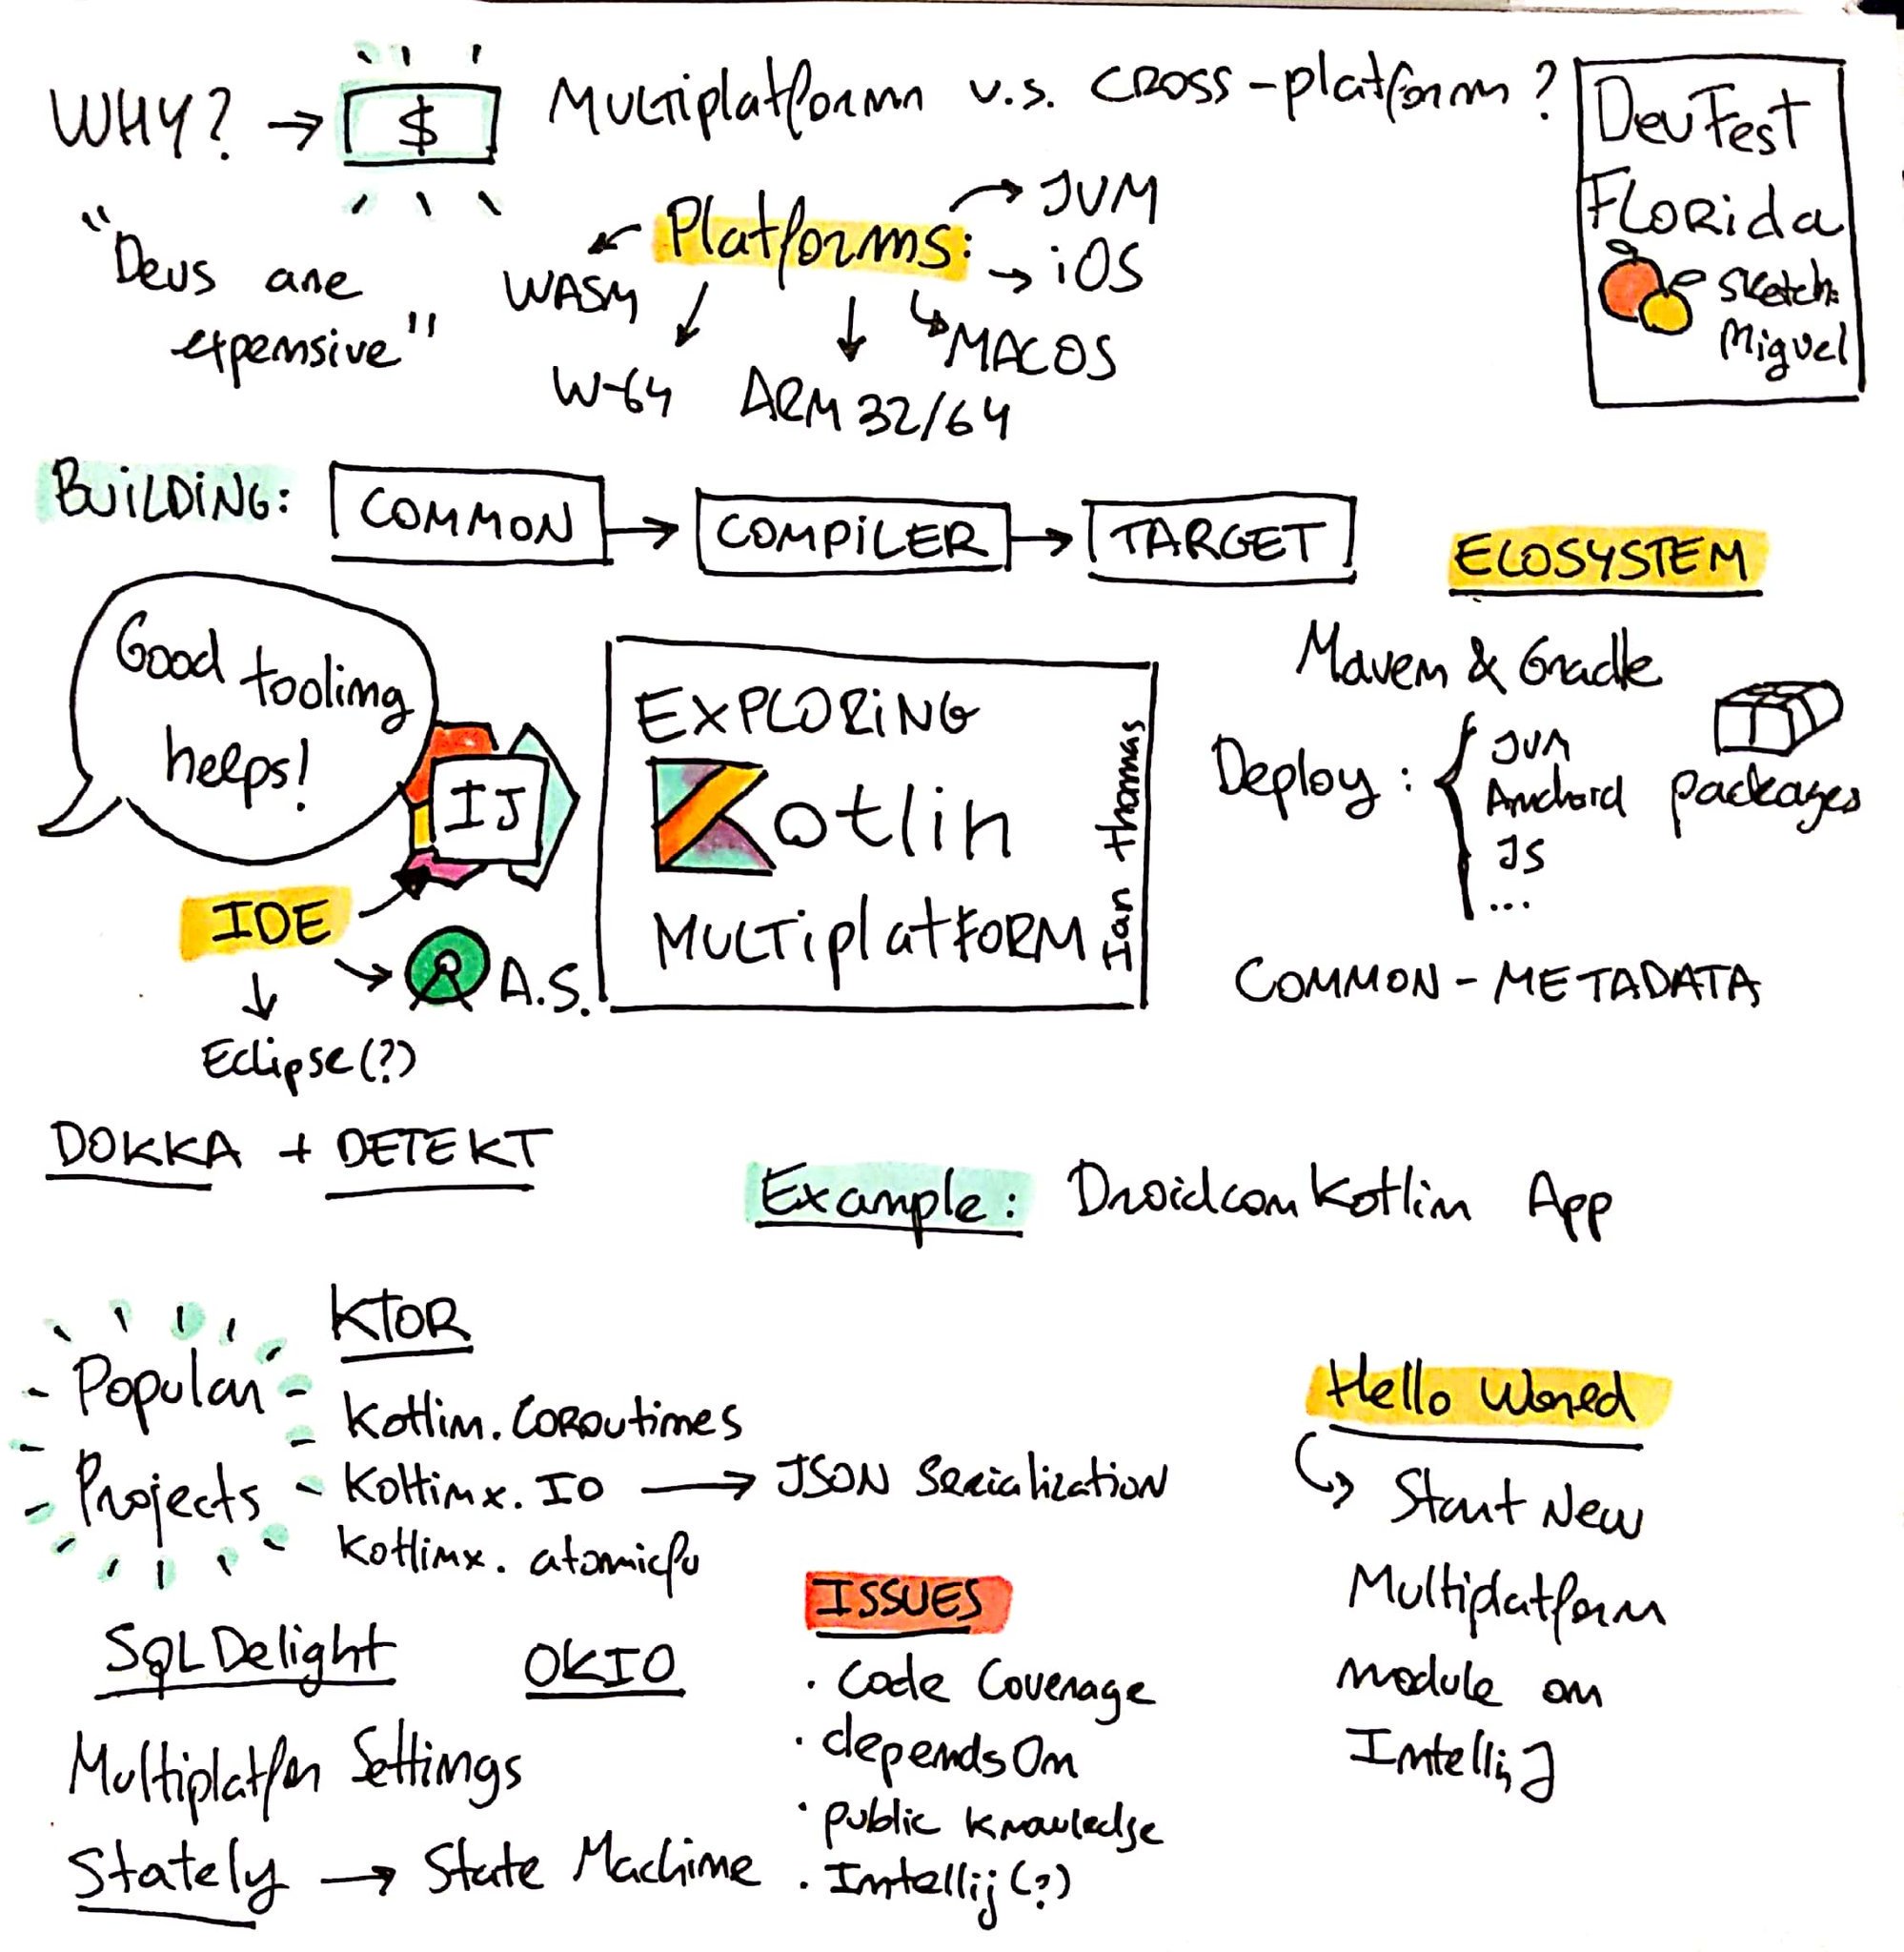 WHY? → $
Multiplatform v.s. CROSS-platform?
DevFest
FLORida
sketch:
Miguel
"Devs are
expensive"
Platforms:
JVM
iOS
MACOS
ARM 32/64
W-64
WASM
BUILDING: COMMON → COMPILER → TARGET
Good tooling
helps!
IJ
IDE
A.S.
Eclipse(?)
EXPLORING
Kotlin
MULTiplatFORM
Ian thomas
ECOSYSTEM
Maven & Gradle
Deploy: {
JVM
Android
JS
...
packages
COMMON - METADATA
DOKKA + DETEKT
Example: Droidcon Kotlin App
Popular
Projects
KTOR
Kotlin.Coroutines
Kotlinx.IO → JSON Serialization
Kotlinx.atomicfu
SQLDelight
OKIO
Multiplatfor Settings
Stately → State Machine
ISSUES
· Code Coverage
· dependsOn
· public knowledge
· Intellij(?)
Hello World
Start New
Multiplatform
module on
IntelliJ